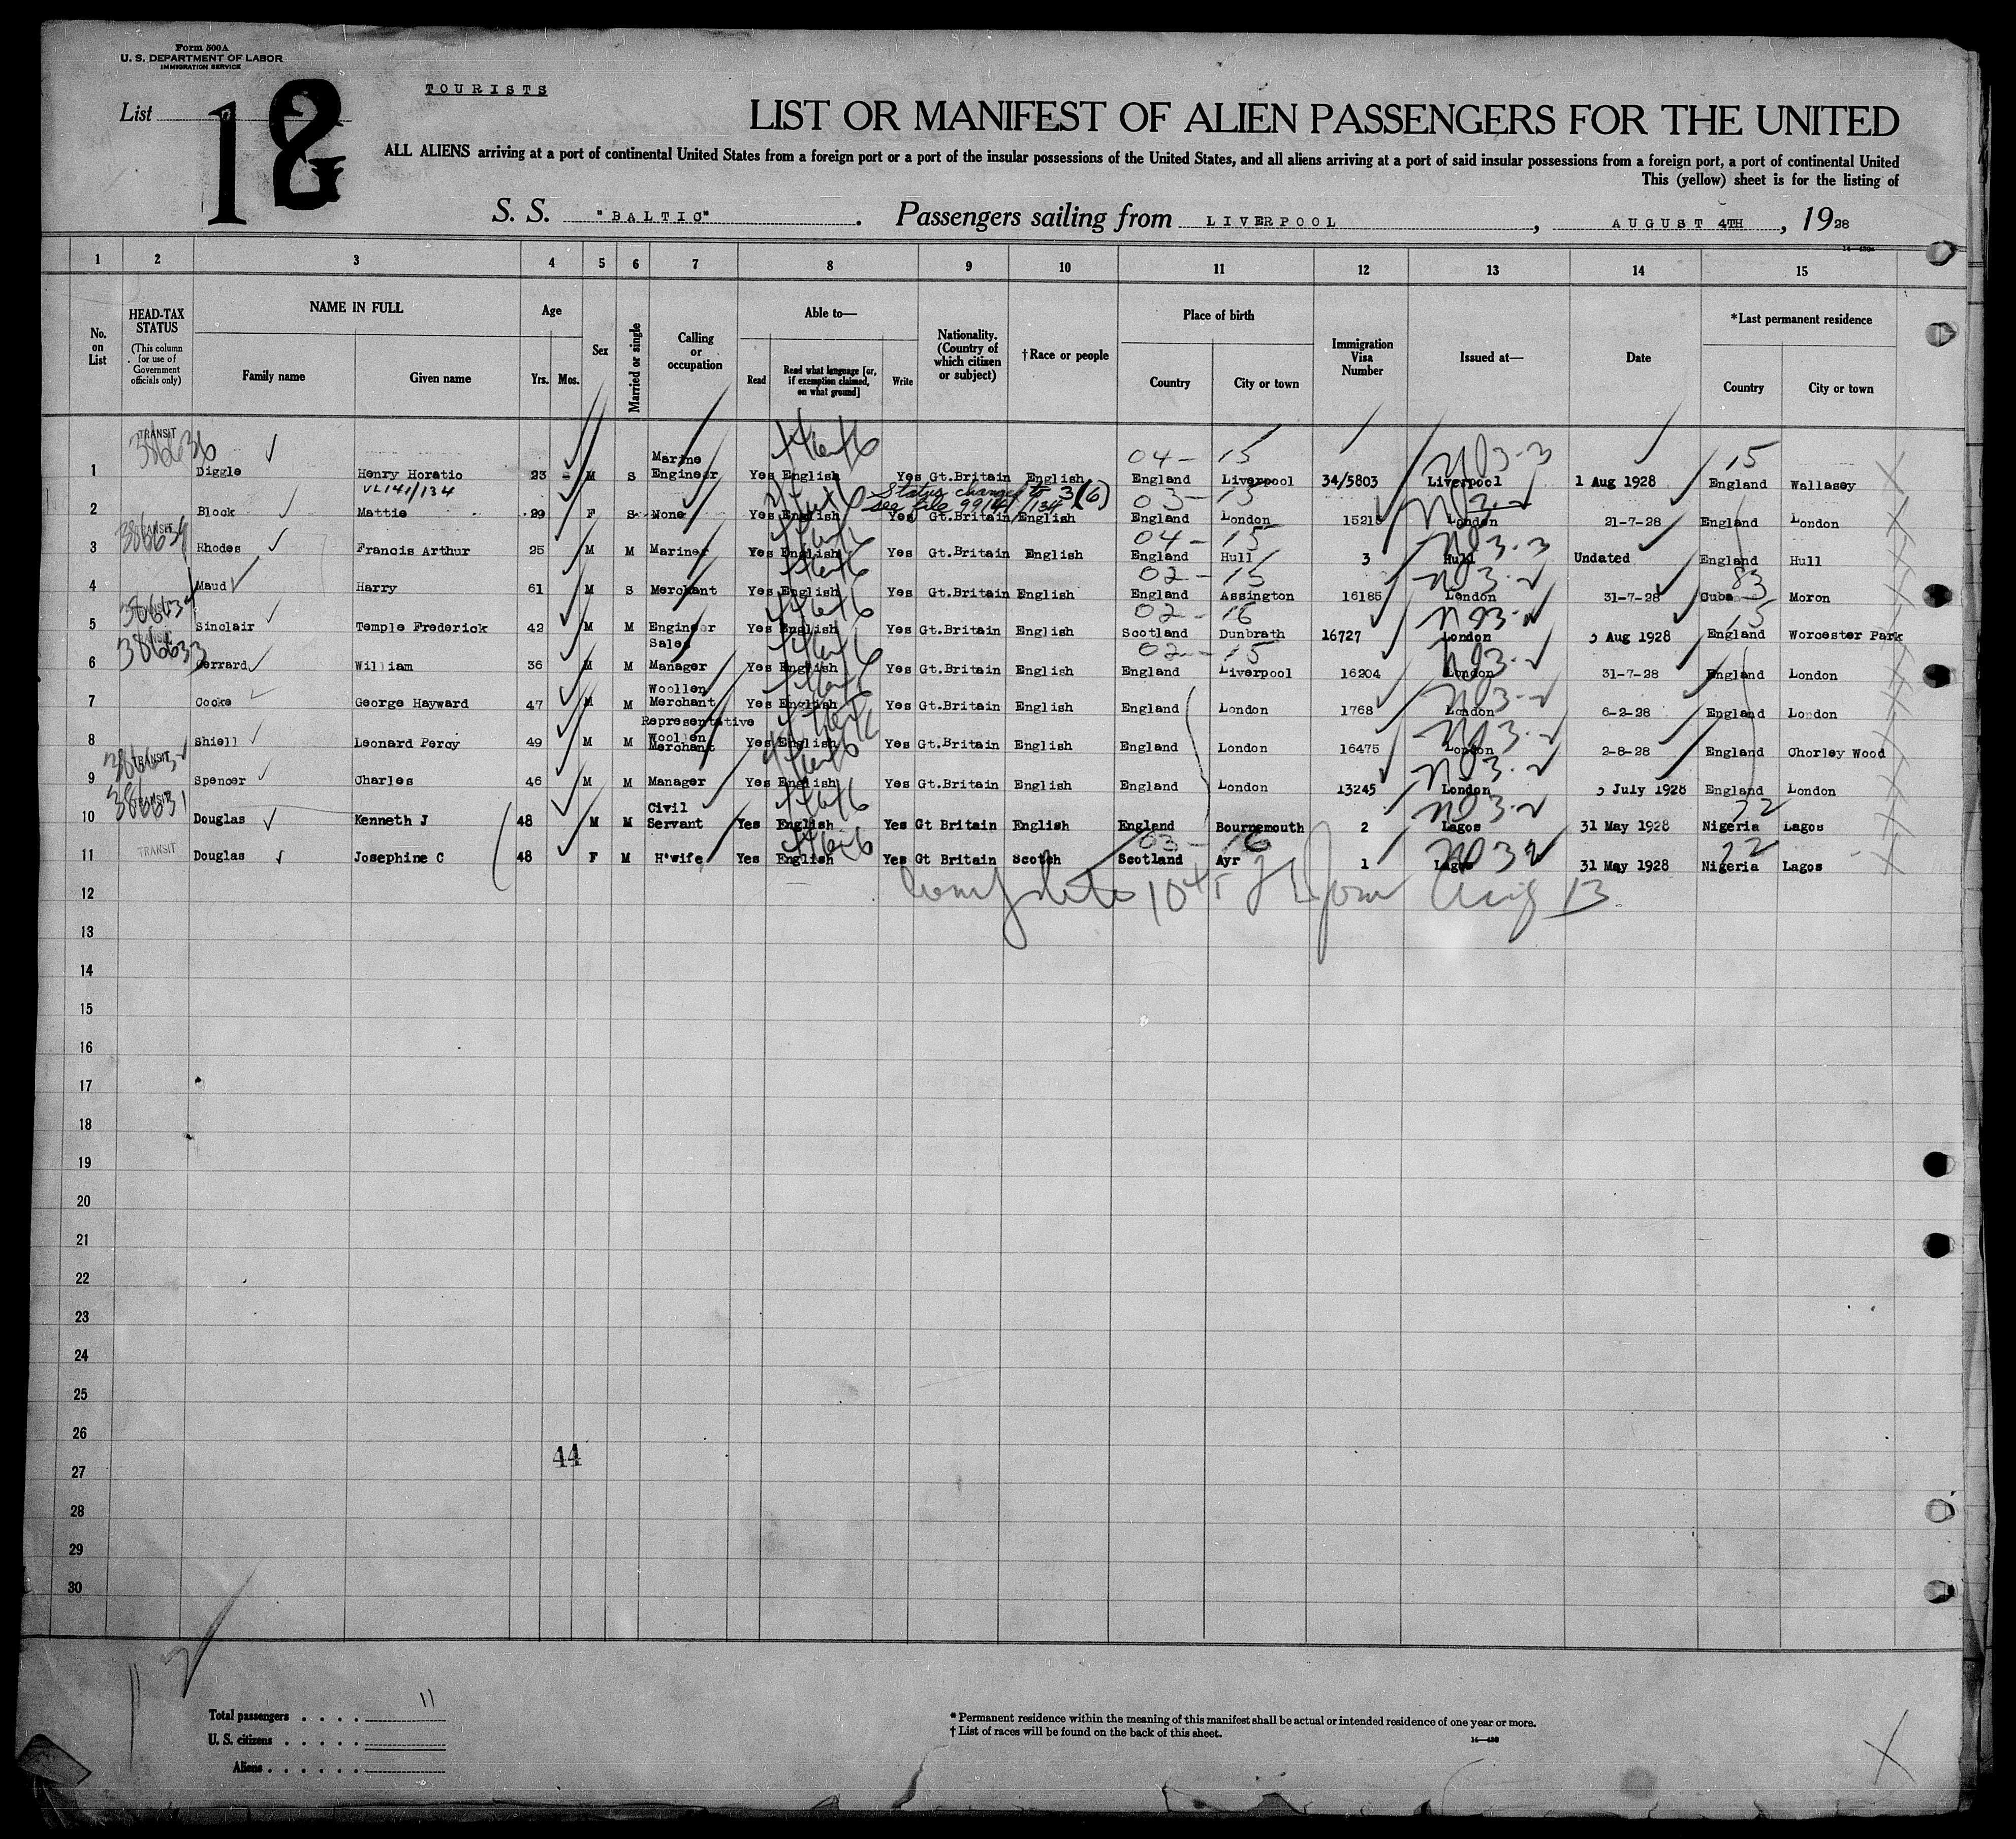 Form 500A
U. S. DEPARTMENT OF LABOR
IMMIGRATION SERVICE
TOURISTS
List 18
LIST OR MANIFEST OF ALIEN PASSENGERS FOR THE UNITED
ALL ALIENS arriving at a port of continental United States from a foreign port or a port of the insular possessions of the United States, and all aliens arriving at a port of said insular possessions from a foreign port, a port of continental United
This (yellow) sheet is for the listing of
S. S. "BALTIC". Passengers sailing from LIVERPOOL, AUGUST 4TH, 1928
1 2 3 4 5 6 7 8 9 10 11 12 13 14 15
No. on List
HEAD-TAX STATUS
(This column for use of Government officials only)
NAME IN FULL
Family name Given name
Age
Yrs. Mos.
Sex
Married or single
Calling or occupation
Able to—
Read
Read what language [or, if exemption claimed, on what ground]
Write
Nationality. (Country of which citizen or subject)
†Race or people
Place of birth
Country City or town
Immigration Visa Number
Issued at—
Date
*Last permanent residence
Country City or town
TRANSIT
04 - 15 15
1 Diggle Henry Horatio 23 - M S Marine Engineer Yes English Yes Gt.Britain English England Liverpool 34/5803 Liverpool 1 Aug 1928 England Wallasey
VL141/134
Status changed to 3(6)
see file 99141/134
03 - 15
2 Block Mattie 29 F S None Yes English Yes Gt.Britain English England London 15215 London 21-7-28 England London
TRANSIT
04 - 15
3 Rhodes Francis Arthur 25 M M Mariner Yes English Yes Gt.Britain English England Hull 3 Hull Undated England Hull
02 - 15 83
4 Maud Harry 61 M S Merchant Yes English Yes Gt.Britain English England Assington 16185 London 31-7-28 Cuba Moron
02 - 16 15
5 Sinclair Temple Frederick 42 M M Engineer Yes English Yes Gt.Britain English Scotland Dunbrath 16727 London Aug 1928 England Worcester Park
386633
02 - 15
6 Gerrard William 36 M M Sales Manager Yes English Yes Gt.Britain English England Liverpool 16204 London 31-7-28 England London
7 Cooke George Hayward 47 M M Woollen Merchant Yes English Yes Gt.Britain English England London 1768 London 6-2-28 England London
8 Shiell Leonard Percy 49 M M Representative Woollen Merchant Yes English Yes Gt.Britain English England London 16475 London 2-8-28 England Chorley Wood
TRANSIT
9 Spencer Charles 46 M M Manager Yes English Yes Gt.Britain English England London 13245 London July 1928 England London
386631
10 Douglas Kenneth J 48 M M Civil Servant Yes English Yes Gt Britain English England Bournemouth 2 Lagos 31 May 1928 Nigeria Lagos
TRANSIT
03 - 16
11 Douglas Josephine C 48 F M H'wife Yes English Yes Gt Britain Scotch Scotland Ayr 1 Lagos 31 May 1928 Nigeria Lagos
12
13
14
15
16
17
18
19
20
21
22
23
24
25
26
44
27
28
29
30
Total passengers . . . . 11
U. S. citizens . . . . .
Aliens . . . . . .
* Permanent residence within the meaning of this manifest shall be actual or intended residence of one year or more.
† List of races will be found on the back of this sheet.